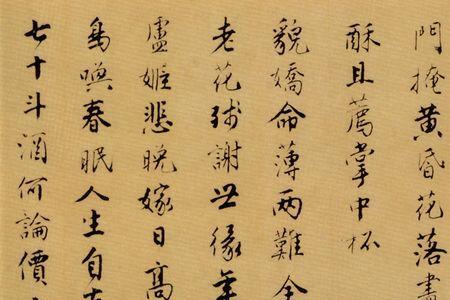 門掩黃昏花落盡
酥且薦掌中杯
貌嬌命薄兩難全
老花殘謝世緣年
盧姬悲晚嫁日高
鳥喚春眠人生自古
七十斗酒何論價